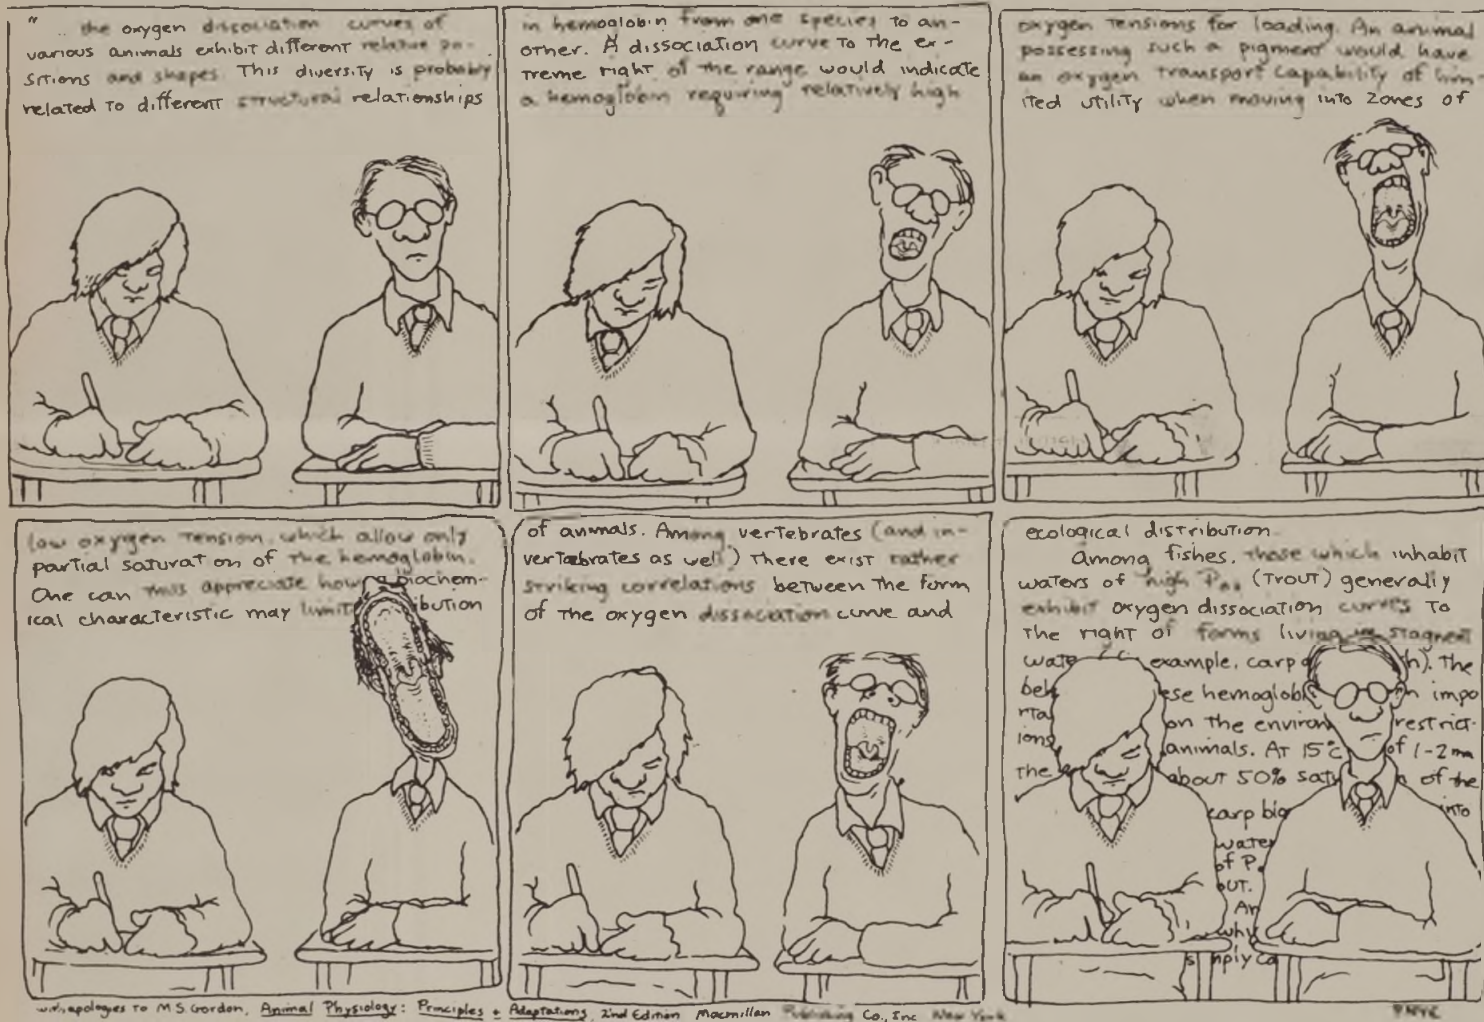 " the oxygen dissociation curves of
various animals exhibit different relative po-
sitions and shapes. This diversity is probably
related to different structural relationships
in hemoglobin from one species to an-
other. A dissociation curve to the ex-
treme right of the range would indicate
a hemoglobin requiring relatively high
oxygen tensions for loading. An animal
possessing such a pigment would have
an oxygen transport capability of lim-
ited utility when moving into zones of
low oxygen tension, which allow only
partial saturation of the hemoglobin.
One can thus appreciate how a biochem-
ical characteristic may limit ibution
of animals. Among vertebrates (and in-
vertebrates as well) there exist rather
striking correlations between the form
of the oxygen dissociation curve and
ecological distribution.
Among fishes, those which inhabit
waters of high P (trout) generally
exhibit oxygen dissociation curves to
the right of forms living in stagnent
wate example, carp h). The
beh ese hemoglob n impo
rta on the environ restrict-
ions animals. At 15°C of 1-2 mm
the about 50% satu n of the
carp blo into
water
of P.
out.
An
why
simply ca
with apologies to M S Gordon, Animal Physiology: Principles + Adaptations, 2nd Edition Macmillan Publishing Co., Inc New York